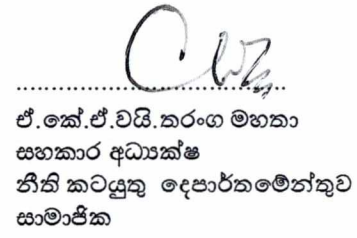 ..........................................
ඒ.කේ.ඒ.වයි.තරංග මහතා
සහකාර අධ්‍යක්ෂ
නීති කටයුතු දෙපාර්තමේන්තුව
සාමාජික